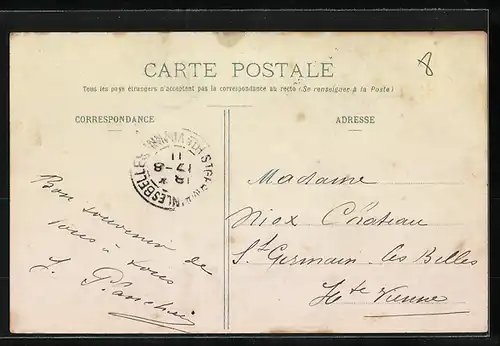 CARTE POSTALE
Tous les pays étrangers n'acceptent pas la correspondance au recto (Se renseigner à la Poste)
8
CORRESPONDANCE
ADRESSE
11
17-8
18 *
Bon souvenir de
tous à tous
J.
Madame
Niox Château
St Germain les Belles
Hte Vienne